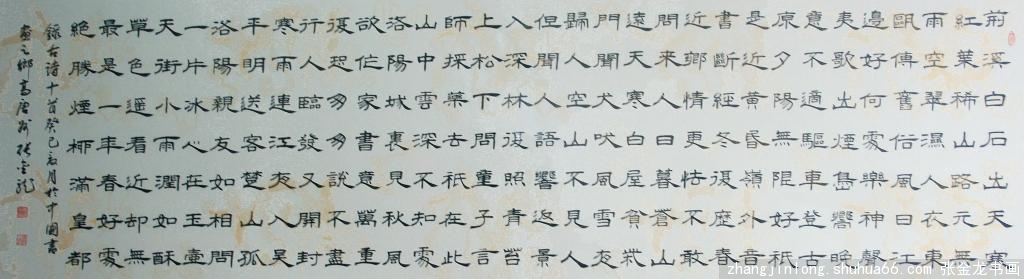 荊溪白石出天寒
紅葉稀山路元無
雨空翠濕人衣東
甌傳舊俗風日江
邊好何處樂神聲
夷歌出煙島響晚
意不適驅車登古
原夕陽無限好祇
是近黃昏嶺外音
書斷經冬復歷春
近鄉情更怯不敢
問來人日暮蒼山
遠天寒白屋貧柴
門聞犬吠風雪夜
歸人空山不見人
但聞人語響返景
入深林復照青苔
上松下問童子言
師採藥去祇在此
山中雲深不知處
洛陽城裏見秋風
欲作家書意萬重
復恐匆匆說不盡
行人臨發又開封
寒雨連江夜入吳
平明送客楚山孤
洛陽親友如相問
一片冰心在玉壺
天街小雨潤如酥
草色遙看近卻無
最是一年春好處
絕勝煙柳滿皇都
錄古詩十首癸巳夏月於中國書
畫之鄉高唐州張金龍
zhangjinlong.shuhua66.com 张金龙书画